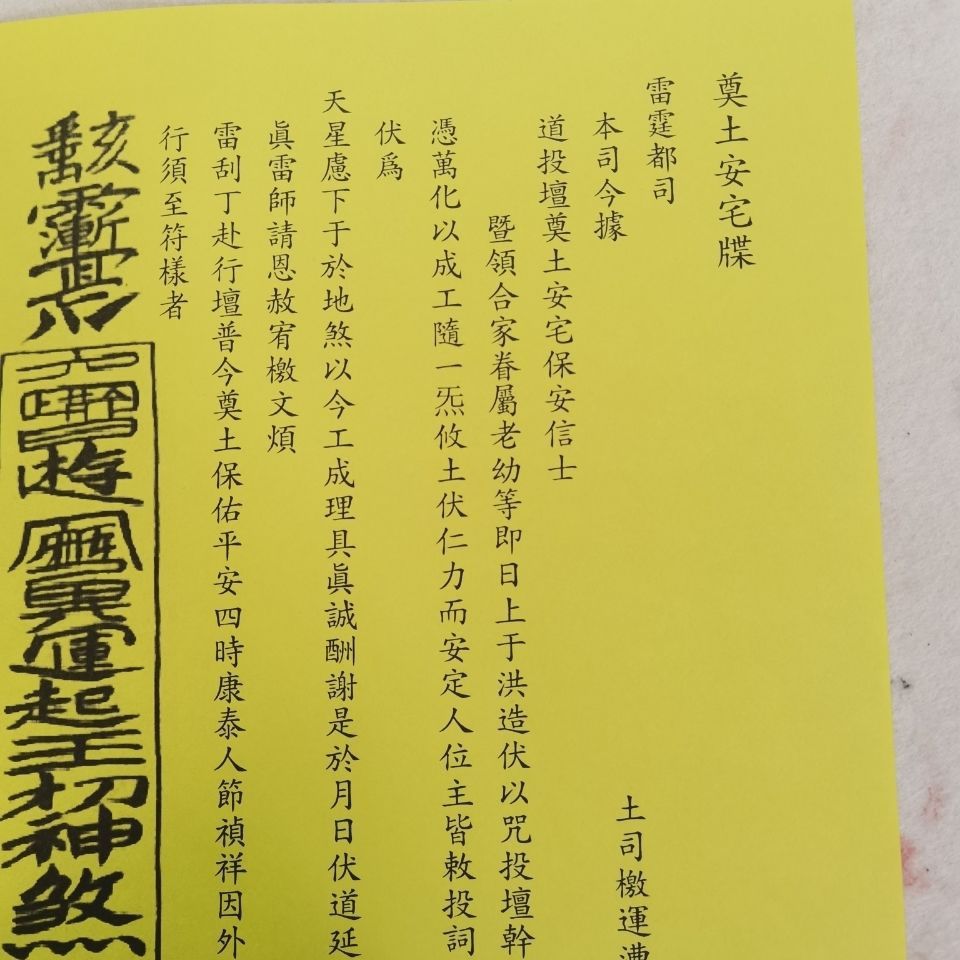 奠土安宅牒
雷霆都司
土司檄運
本司今據
道投壇奠土安宅保安信士
暨領合家眷屬老幼等即日上于洪造伏以咒投壇幹
憑萬化以成工隨一炁攸土伏仁力而安定人位主皆敕投詞
伏爲
天星慮下于於地煞以今工成理具眞誠酬謝是於月日伏道延
眞雷師請恩赦宥檄文煩
雷刮丁赴行壇普今奠土保佑平安四時康泰人節禎祥因外
行須至符樣者
運起
神煞